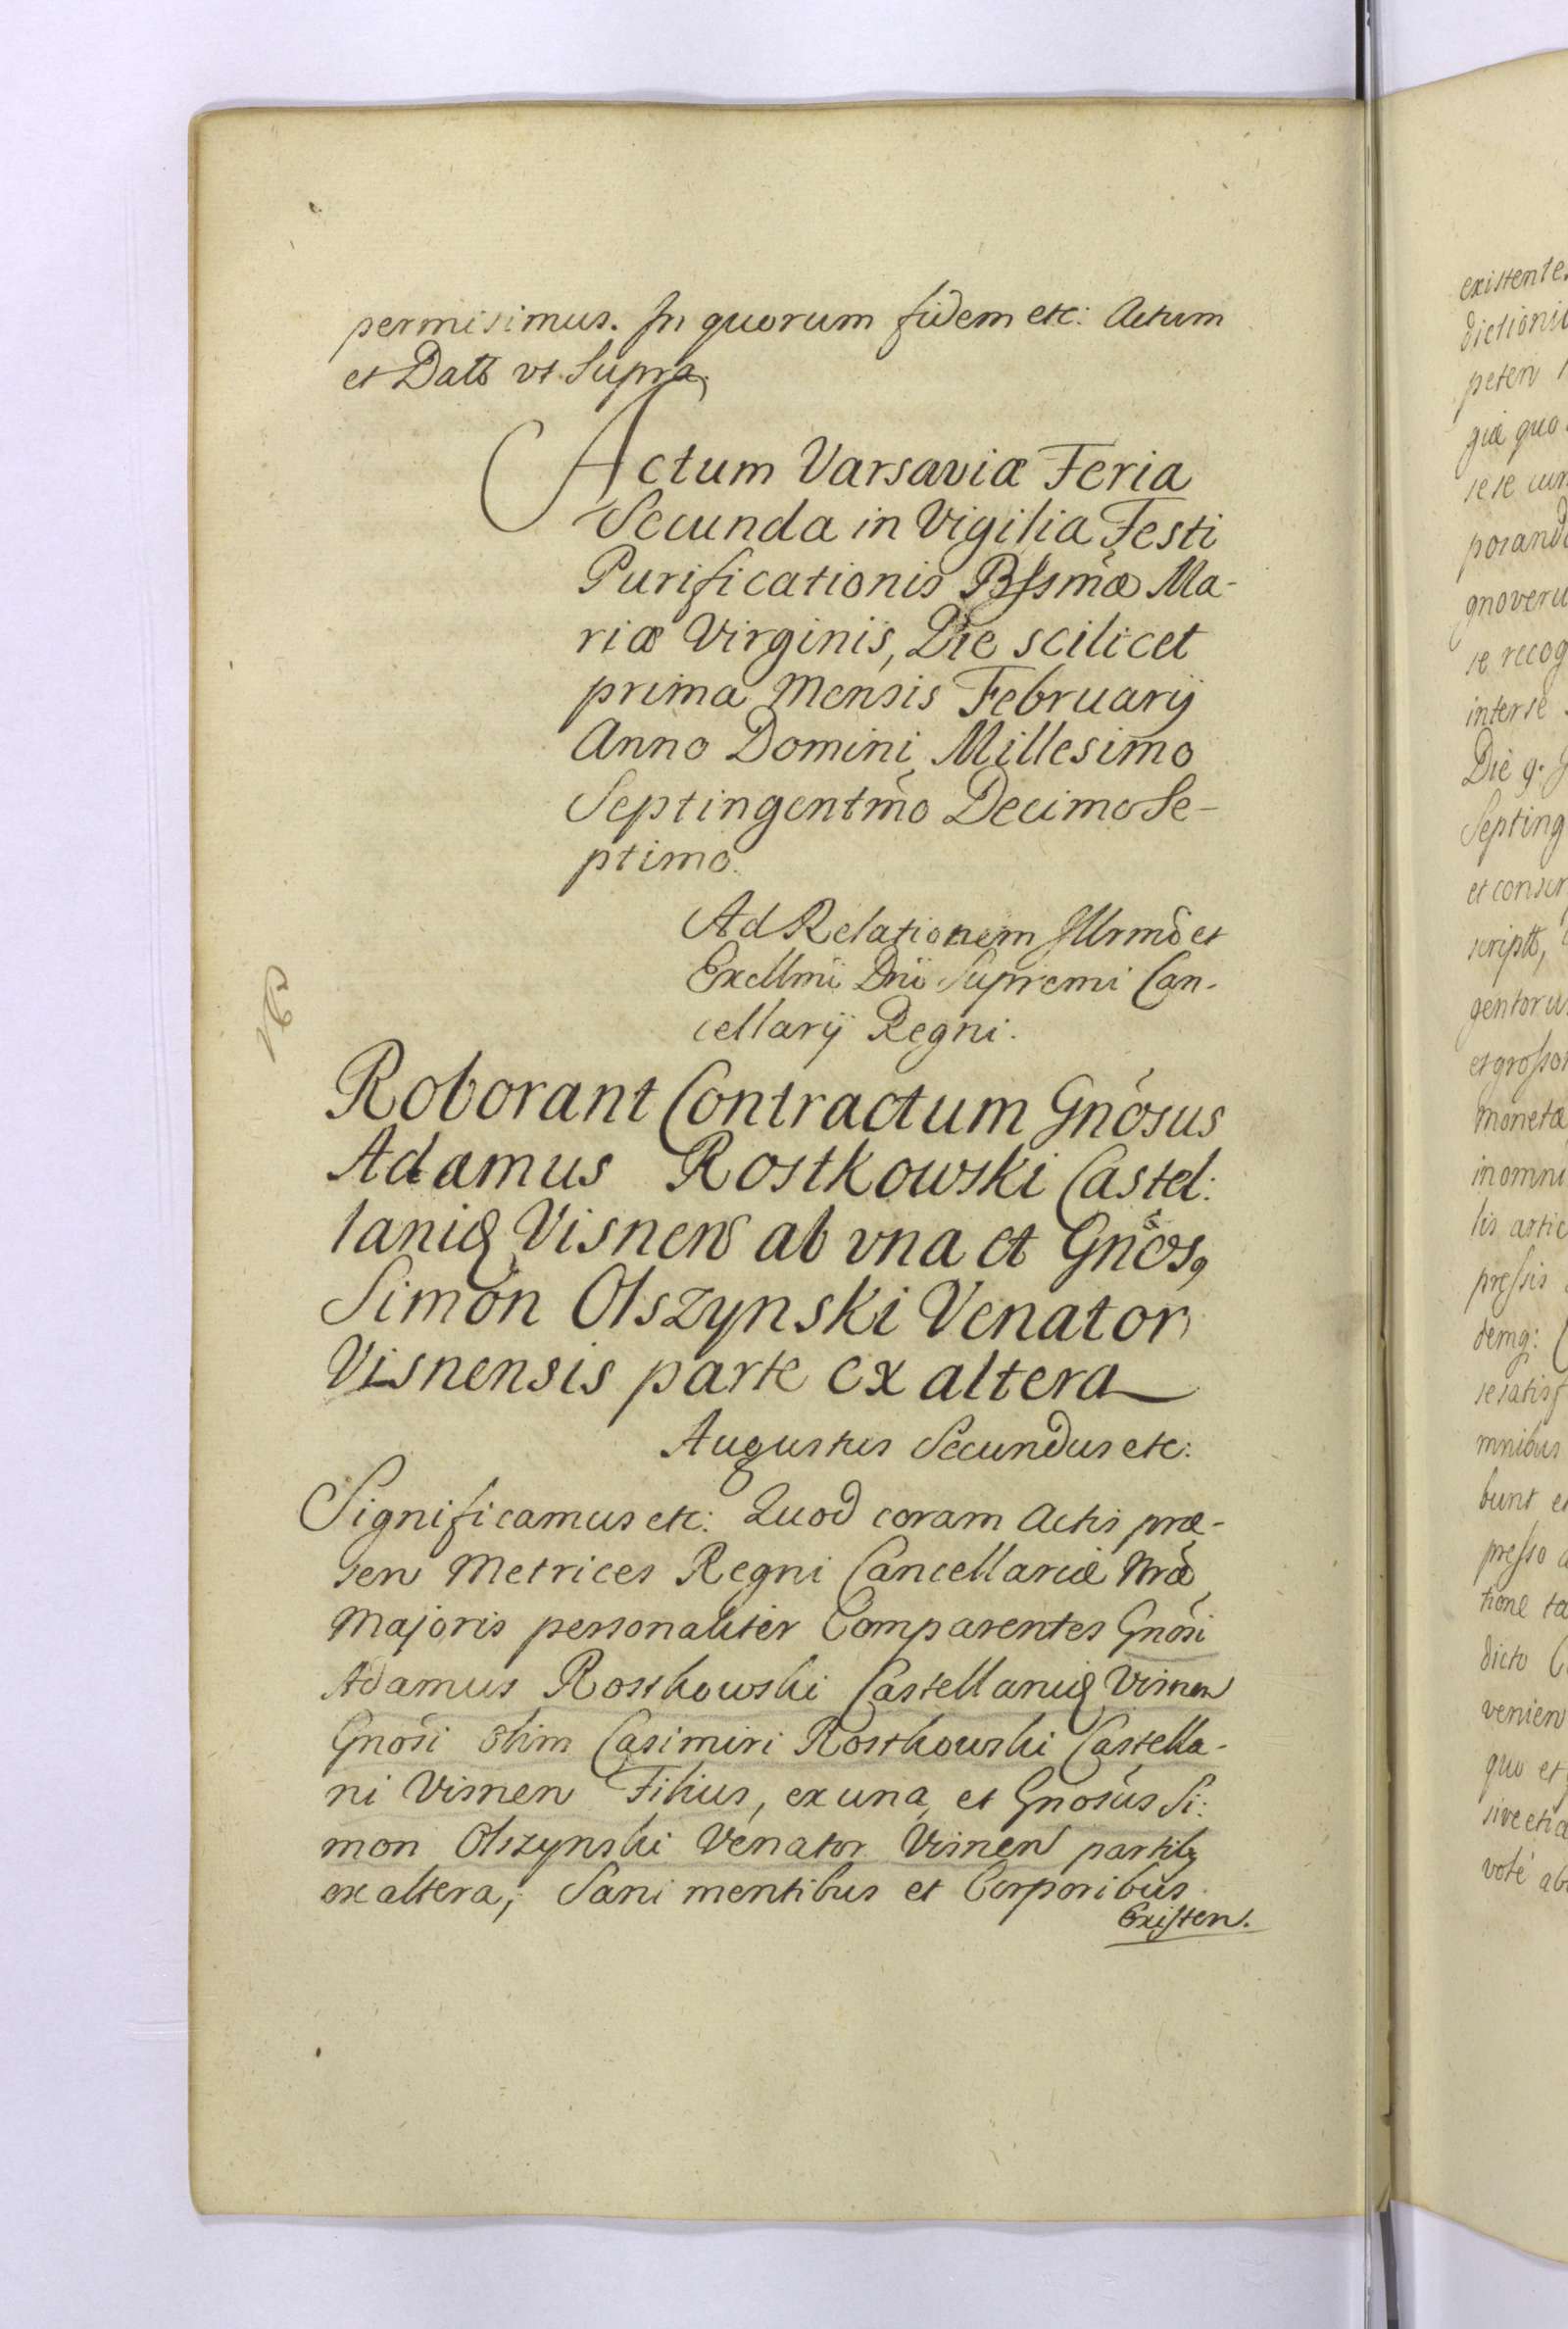 permisimus. In quorum fidem etc: Actum
et Datt vt Supra.
Actum Varsaviæ Feria
Secunda in Vigilia Festi
Purificationis Bssmæ Ma-
riæ Virginis, Die scilicet
prima Mensis Februarij
Anno Domini Millesimo
Septingentmo Decimo Se-
ptimo.
Ad Relationem Illrmo et
Excllmi Dni Supremi Can-
cellarij Regni.
Roborant Contractum Gnosus
Adamus Rostkowski Castel:
laniq Visnen ab vna et Gnosq
Simon Olszynski Venator
Visnensis parte ex altera
Augustus Secundus etc:
Significamus etc: Quod coram Actis præ-
sen Metrices Regni Cancellariæ Nræ
Majoris personaliter Comparentes Gnosi
Adamus Rostkowski Castellaniq Visnen
Gnosi olim Casimiri Rostkowski Castella-
ni Visnen Filius, ex una, et Gnosus Si:
mon Olszynski Venator Visnen partibq
ex altera, Sani mentibus et Corporibus
Existen.
existente
dictioni
peten
giæ quo
sese cum
porand
gnoveru
se recog
inter se
Die 9.
Septing
et conscr
scriptt,
gentoru
et grossor
monetæ
in omni
lis artic
pressis
demq:
se satisf
mnibus
bunt e
presso
tione ta
dicto
venien
quo et
sive etia
vote ab